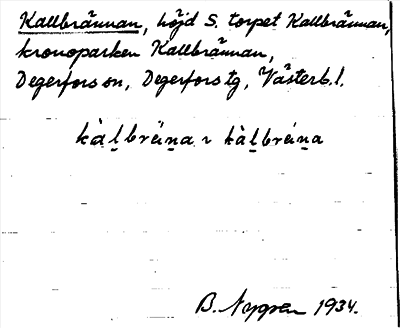 Kallbrännan, höjd S. torpet Kallbrännan,
kronoparken Kallbrännan,
Degerfors sn, Degerfors tg, Västerb. l.
kàḻbréiṉa ɿ kàḻbréiṉa
B. Nygren 1934.